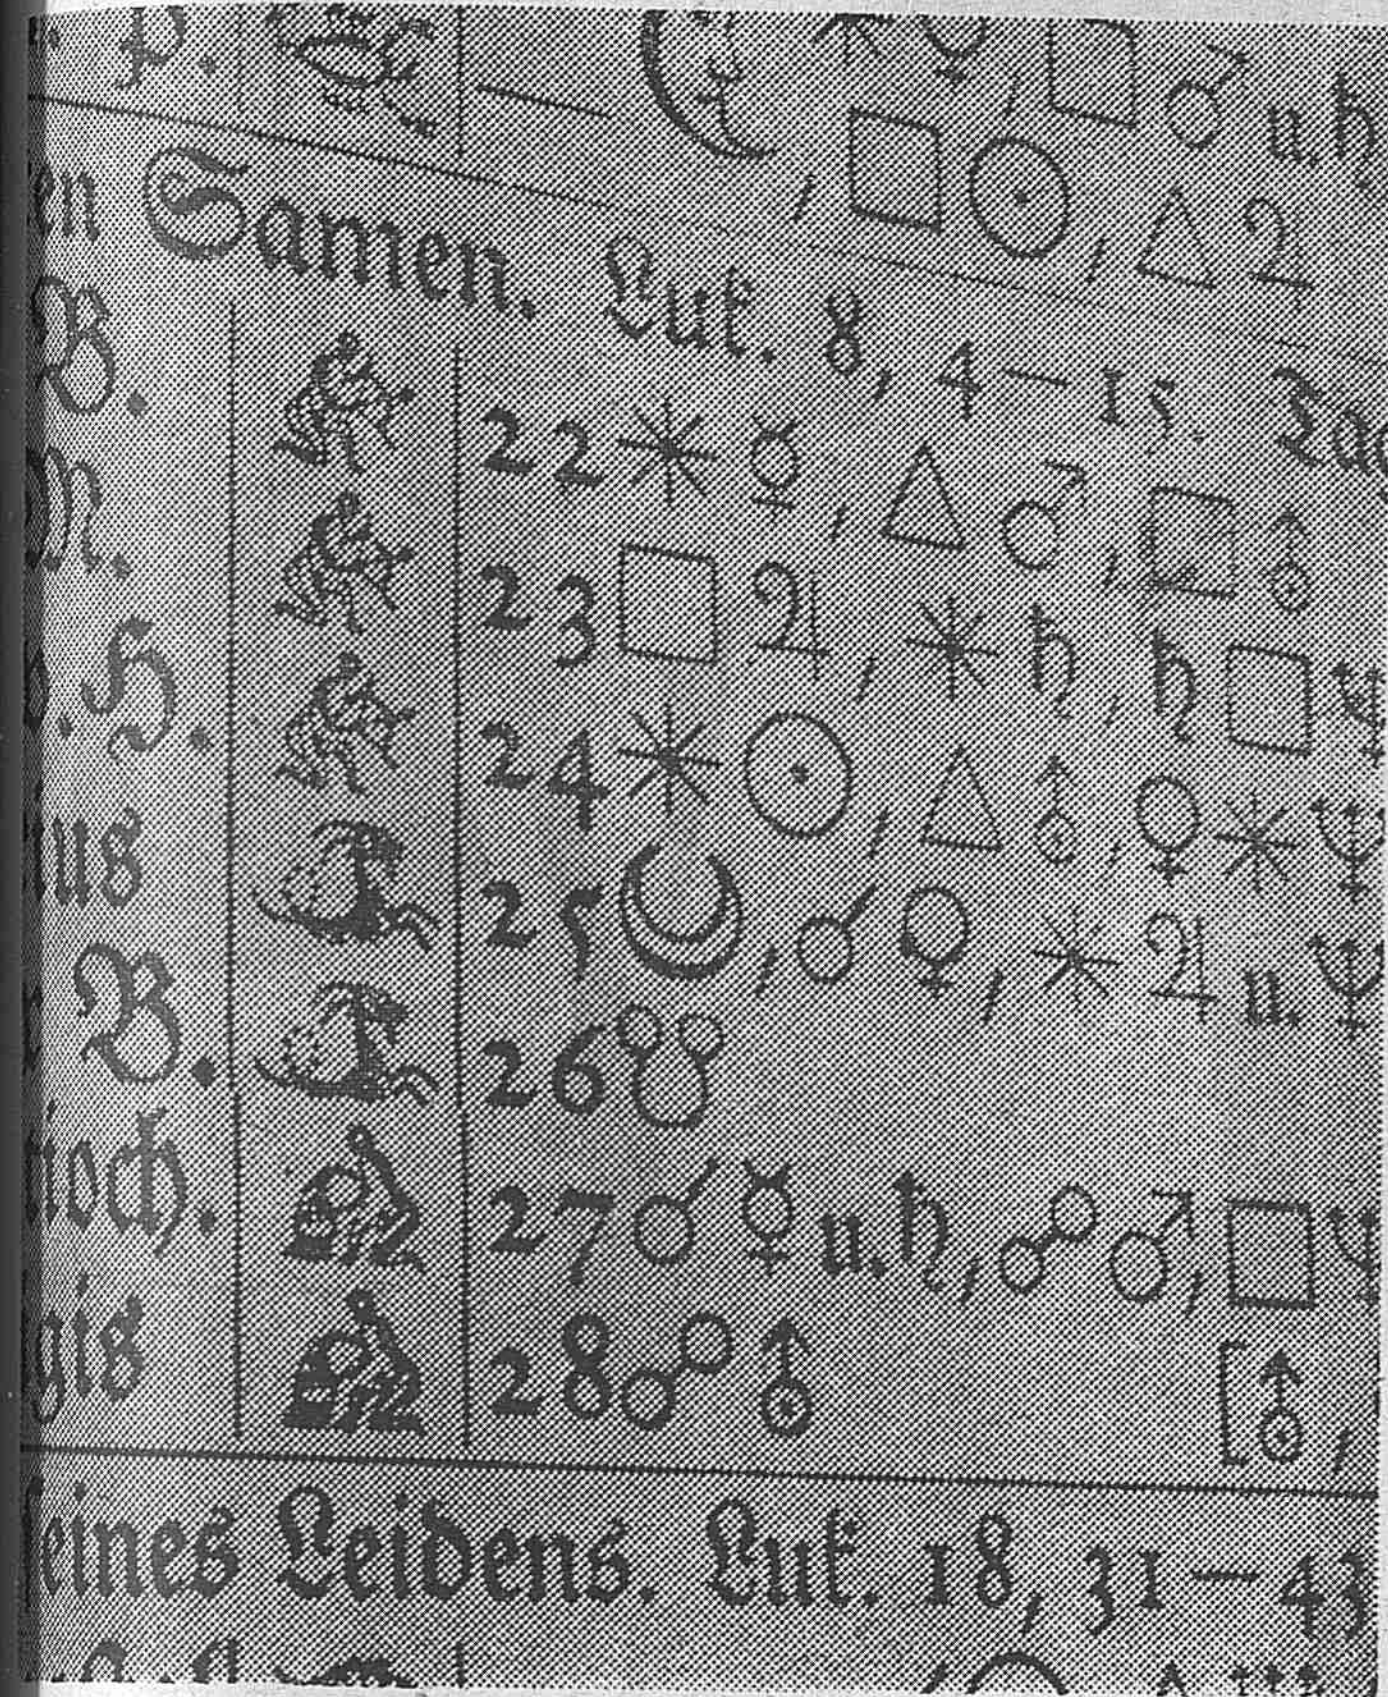 P. — ☾, ✶ ☿, □ ♂ u. ♄
, □ ☉, △ ♃
en Samen. Luk. 8, 4—15.
B. 22 ✶ ☿, △ ♂, □ ⛢
M. 23 □ ♃, ✶ ♄, ♄ □ ♆
H. 24 ✶ ☉, △ ⛢, ♀ ✶ ♆
ius 25 ☾, ☌ ♀, ✶ ♃ u. ♆
B. 26
ioch. 27 ☌ ☿ u. ♄, ☍ ♂, □ ♆
gis 28 ☍ ⛢ [⛢,
seines Leidens. Luk. 18, 31—43